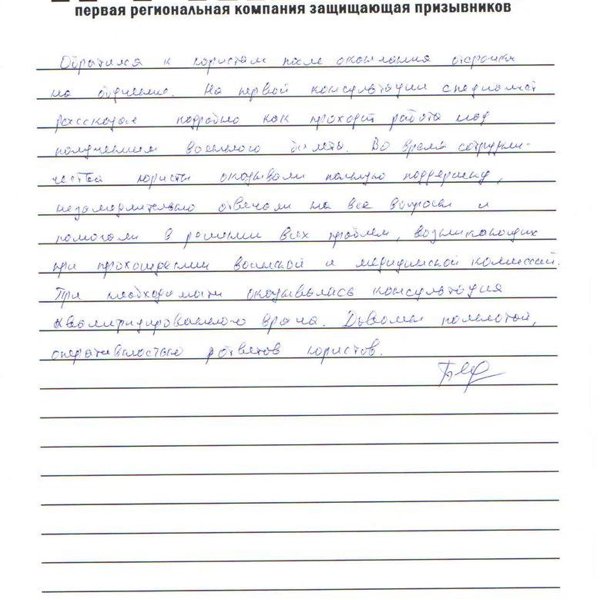 первая региональная компания защищающая призывников
Обратился к юристам после окончания отсрочки
на обучение. На первой консультации специалист
рассказал подробно как проходит работа над
получением военного билета. Во время сотрудни-
чества юристы оказывали полную поддержку,
незамедлительно отвечали на все вопросы и
помогали в решении всех проблем, возникающих
при прохождении воинской и медицинской комиссий.
При необходимости оказывалась консультация
квалифицированного врача. Доволен
оперативностью ответов юристов.